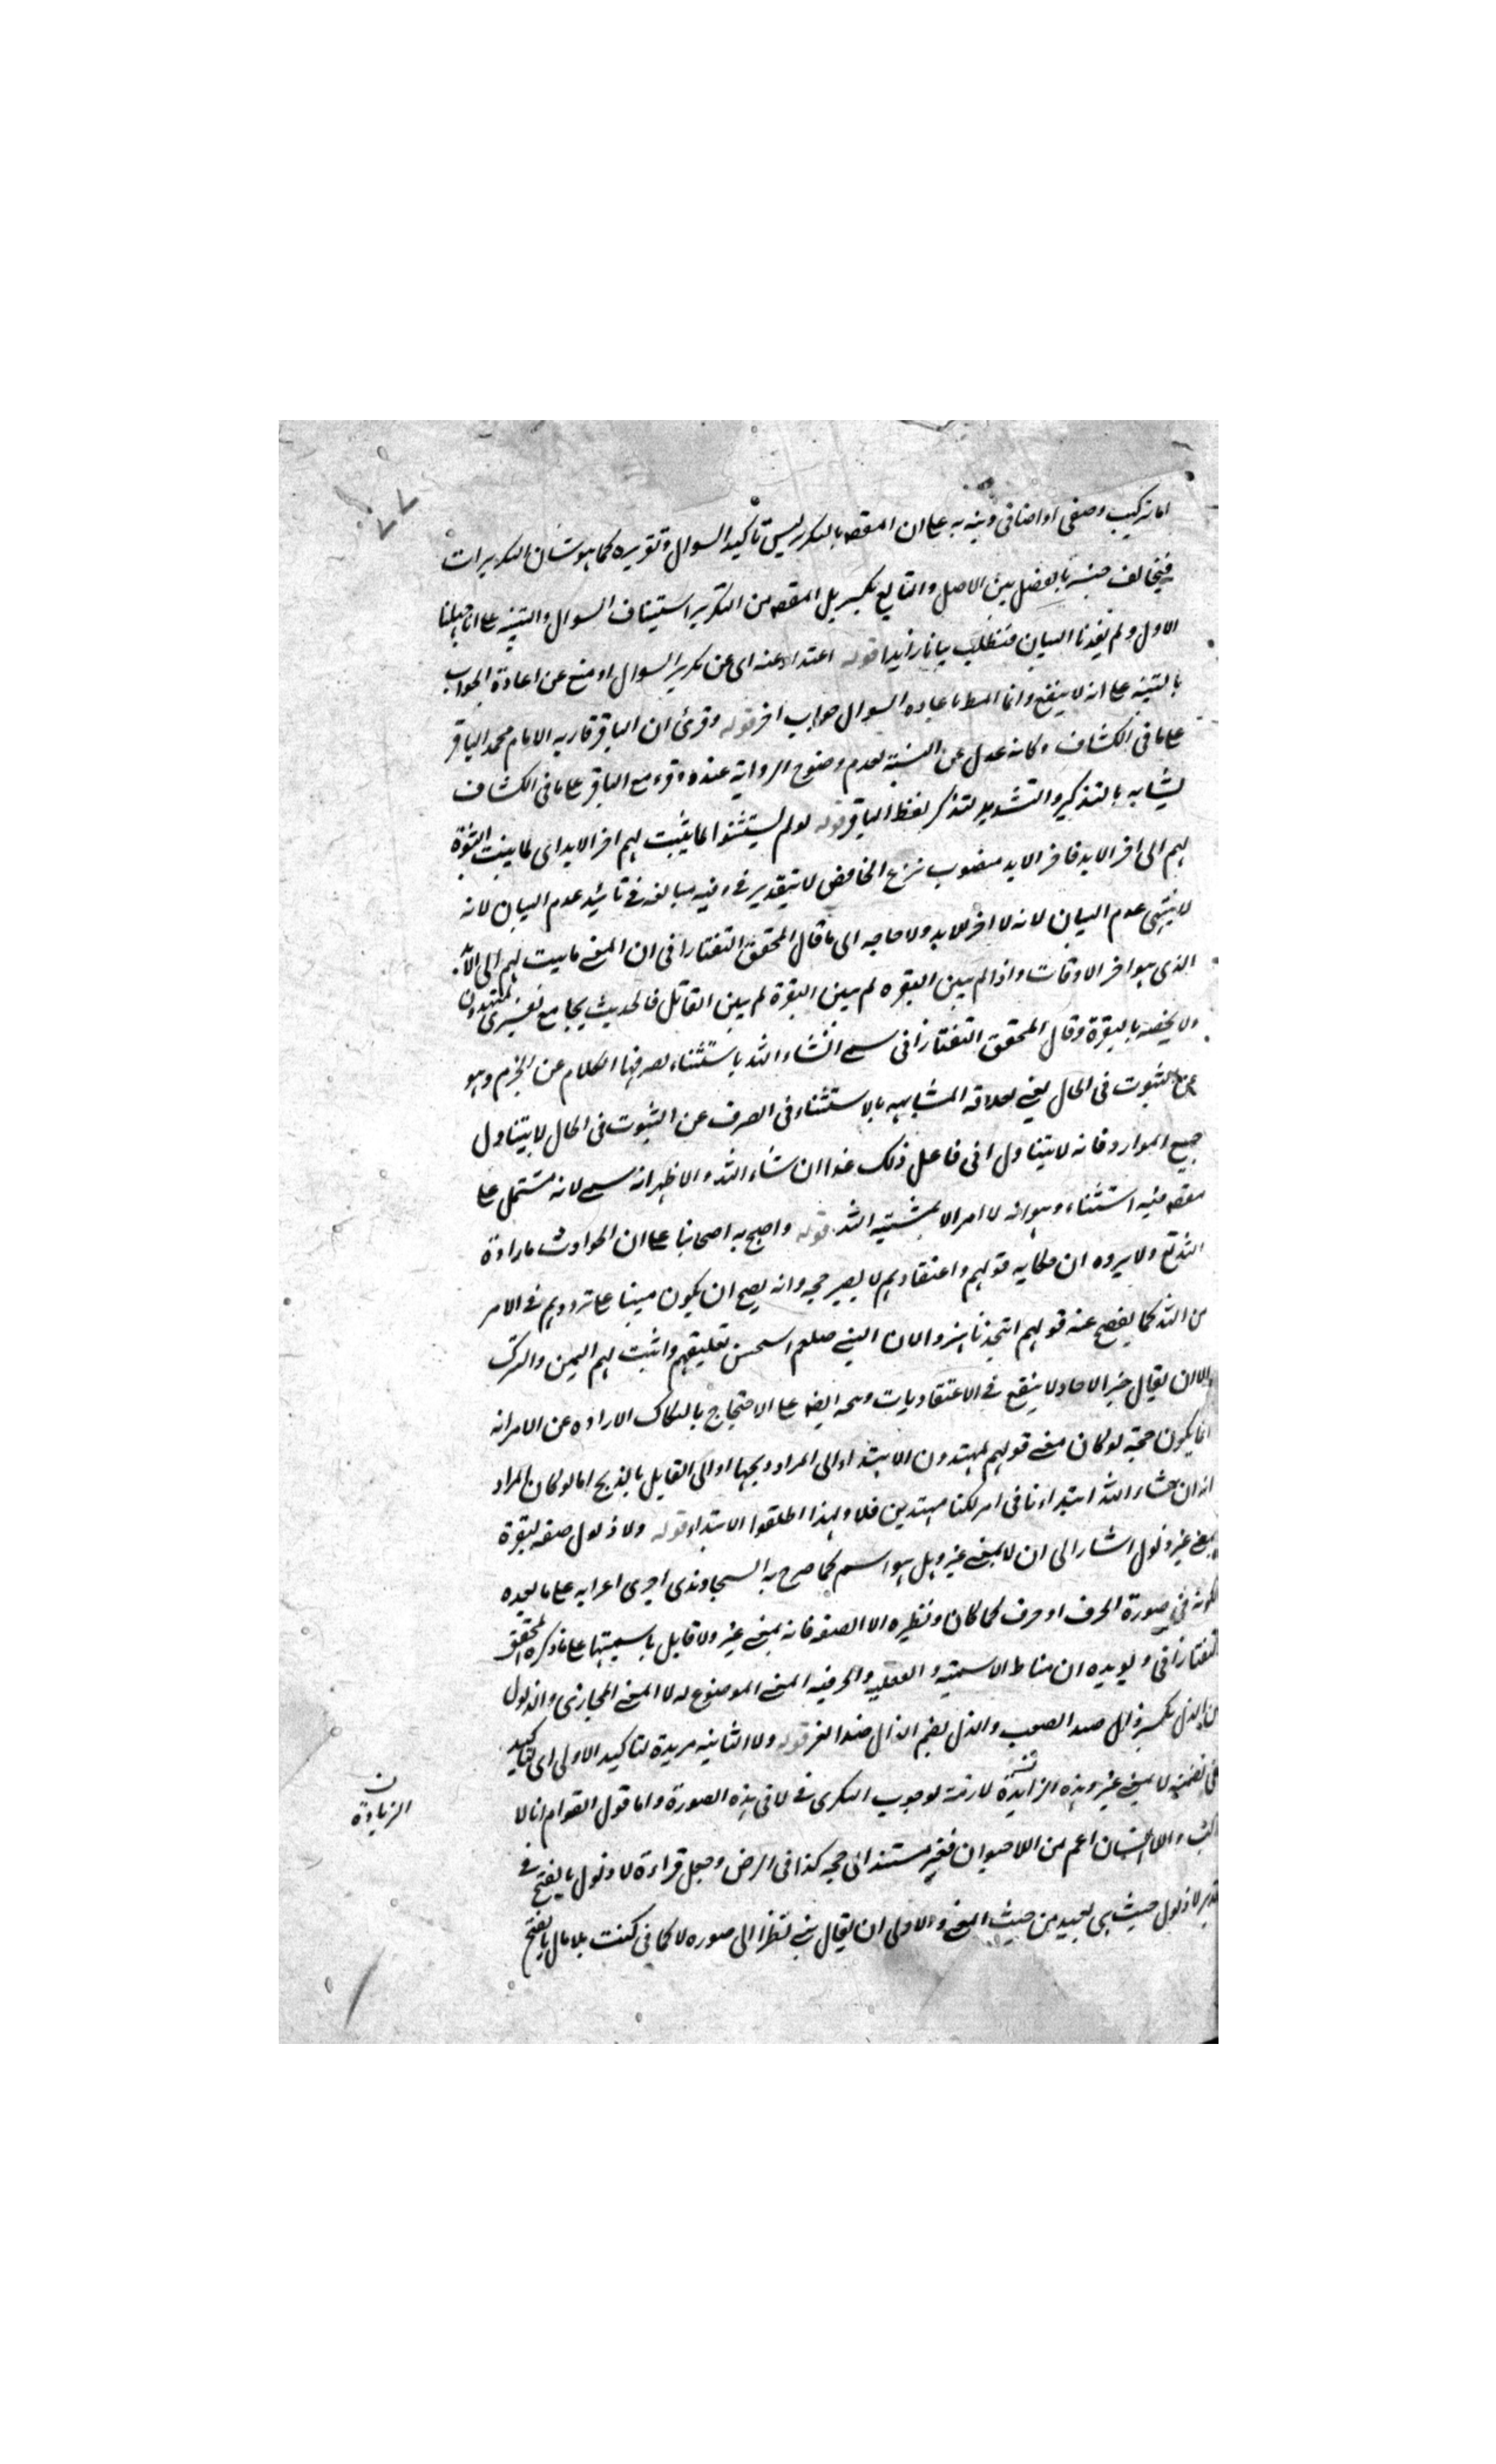 ٧٧
اما تركيب وصفي او اضافي ونبه به على ان المقصد بالتكرير ليس تأكيد السوال وتقويره كما هو شان التكريرات
فيخالف جنسه بالفصل بين الاصل والتابع بكبير بل المقصد من التكرير استيناف السوال والتنبيه على انا جهلنا
الاول ولم يفدنا البيان فنطلب بيانا زايدا قوله اعتذار عنه اى عن تكرير السوال او منع عن اعادة الجواب
بالتنبيه على انه لا ينفع وانما المط باعاده السوال جواب اخر قوله وقرئ ان الباقر قاريه الامام محمد الباقر
على ما فى الكشاف وكانه عدل عن النسبة لعدم وضوح الرواية عنده وقرء مع الباقر على ما فى الكشاف
يشابه بالتذكير والتشديد لتذكر لفظ الباقر قوله لو لم يستثنوا لما بينت لهم اخر الابد اى لما بينت البقرة
لهم الى اخر الابد فاخر الابد منصوب بنزع الخافض لا بتقدير فى وفيه مبالغه فى تائيد عدم البيان لانه
لا ينتهى عدم البيان لانه لا اخر للابد ولا حاجه الى ما قال المحقق التفتازانى ان المعنى ما بينت لهم الى الابد
الذى هو اخر الاوقات واذا لم يبين البقره لم يبين البقرة لم يبين القاتل فالحديث يجامع تفسيرى لمهتدون
ولا يخصه بالبقرة وقال المحقق التفتازانى سمى ان شاء الله باستثناء لصرفها الكلام عن الجزم وهو
عن الثبوت فى الحال يعنى لعلاقه المشابهه بالاستثناء فى الصرف عن الثبوت فى الحال لا يتناول
جميع الموارد فانه لا يتناول انى فاعل ذلك غدا ان شاء الله والاظهر انه سمى لانه مشتمل على
مقصد منه استثناء وهو انه لا امر الا بمشية الله قوله واحتج به اصحابنا على ان الحوادث بارادة
الله تع ولا يرده ان حكايه قولهم واعتقادهم لا يصير حجه وانه يصح ان يكون مبنيا على ترددهم فى الامر
من الله كما يفصح عنه قولهم اتتخذنا هزوا لان النبى صلعم استحسن تعليقهم واثبت لهم اليمن والترك
الا ان يقال خبر الاحاد لا ينفع فى الاعتقاديات ومحه ايضه على الاحتجاج بانفكاك الاراده عن الامر انه
انما يكون حجة لو كان معنى قولهم لمهتدون الاهتداء الى المراد بذبحها او الى القايل بالذبح اما لو كان المراد
انه ان شاء الله اهتداءنا فى امر لكنا مهتدين فلا ولهذا اطلقوا الاهتداء قوله ولا ذلول صفه لبقرة
بمعنى غير ذلول اشار الى ان لا بمعنى غير وبل هو اسم كما صرح به السجاوندى اجرى اعرابه على ما بعده
لكونه فى صورة الحرف او حرف كما كان ونظيره الا الصفه فانه بمعنى غير ولا قايل باسميتها على ما ذكره المحقق
التفتازانى ويويده ان مناط الاسمية والفعليه والحرفيه المعنى الموضوع له لا المعنى المجازى والذلول
من الذل بكسر ذال ضد الصعب والذل بضم الذال ضد العز قوله ولا الثانيه مزيدة لتاكيد الاولى اى لتاكيد
لا بمعنى غير وهذه الزايدة لازمة لوجوب التكرى فى لا فى هذه الصورة واما قول القوام انا لا
والا انسان اعم من اللا حيوان فغير مستند الى حجه كذا فى الرض وجعل قراءة لا ذلول بالفتح فى
لا ذلول حيث هى بعيد من حيث المعنى والاولى ان يقال بنى نظرا الى صوره لا كما فى كنت بلا مال بالفتح
ن
الزيادة